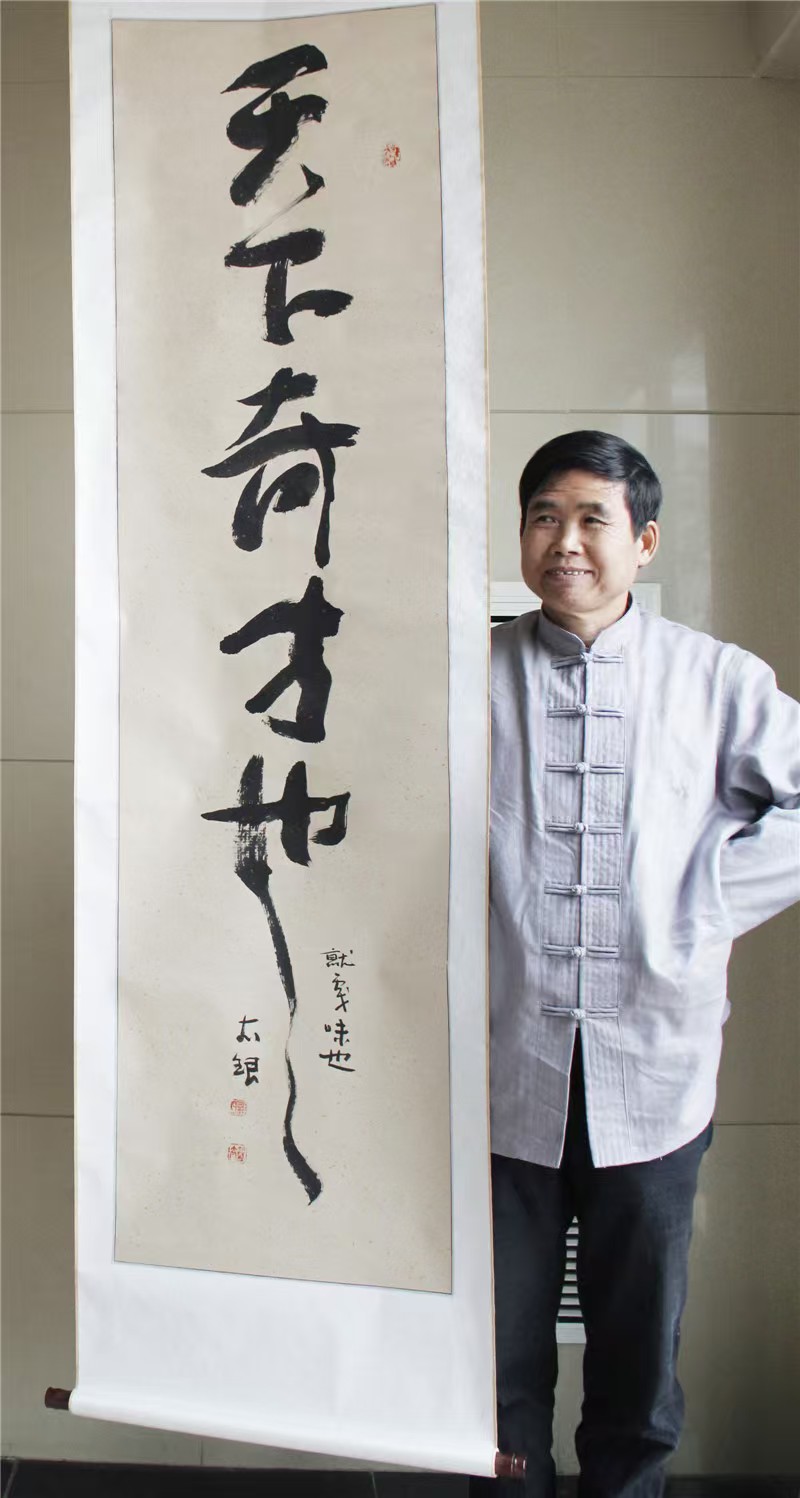 天下奇才也
就戏味也
太银